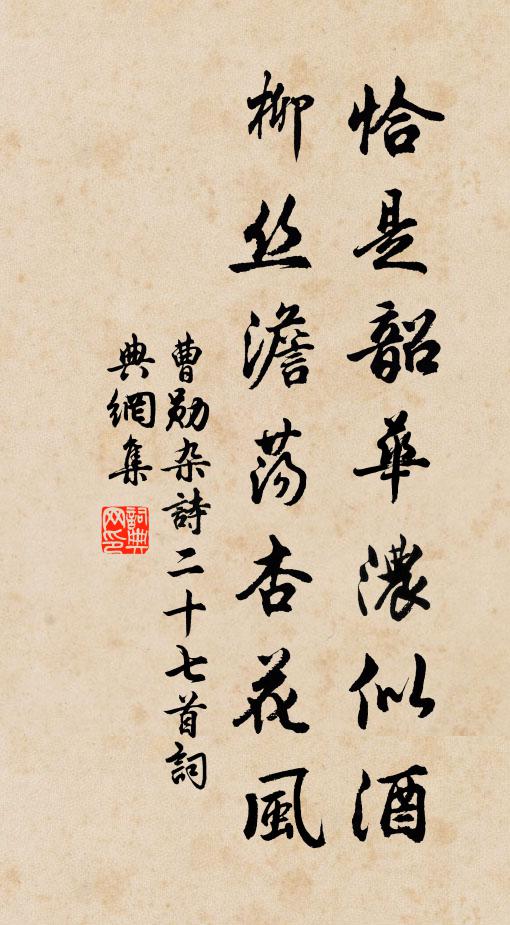 恰是韶華濃似酒
柳丝澹荡杏花風
曹勋杂詩二十七首詞
典網集
詞典
网印